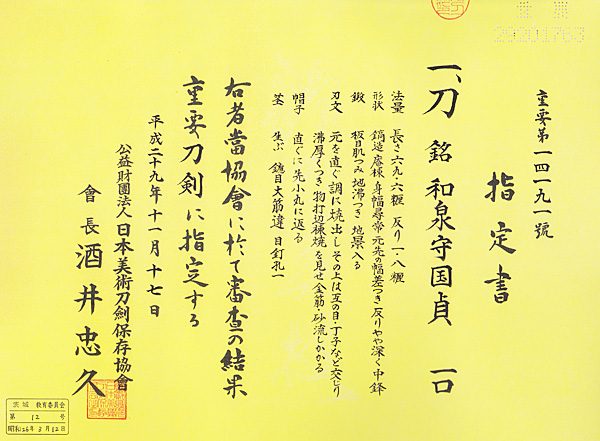 重要第一四一九一號
指定書
一、刀 銘 和泉守国貞 一口
法量 長さ六九・六糎 反り一・八糎
形状 鎬造 庵棟 身幅尋常 元先の幅差つき 反りやや深く 中鋒
鍛 板目肌つみ 地沸つき 地景入る
刃文 元を直ぐ調に焼出し その上は互の目・丁子など交じり
沸厚くつき 物打辺棟焼を見せ 金筋・砂流しかかる
帽子 直ぐに先小丸に返る
茎 生ぶ 鑢目大筋違 目釘孔一
右者當協會に於て審査の結果
重要刀剣に指定する
平成二十九年十一月十七日
公益財團法人日本美術刀劍保存協會
會長 酒井忠久
茨城 教育委員会
第 12 号
昭和26年3月12日